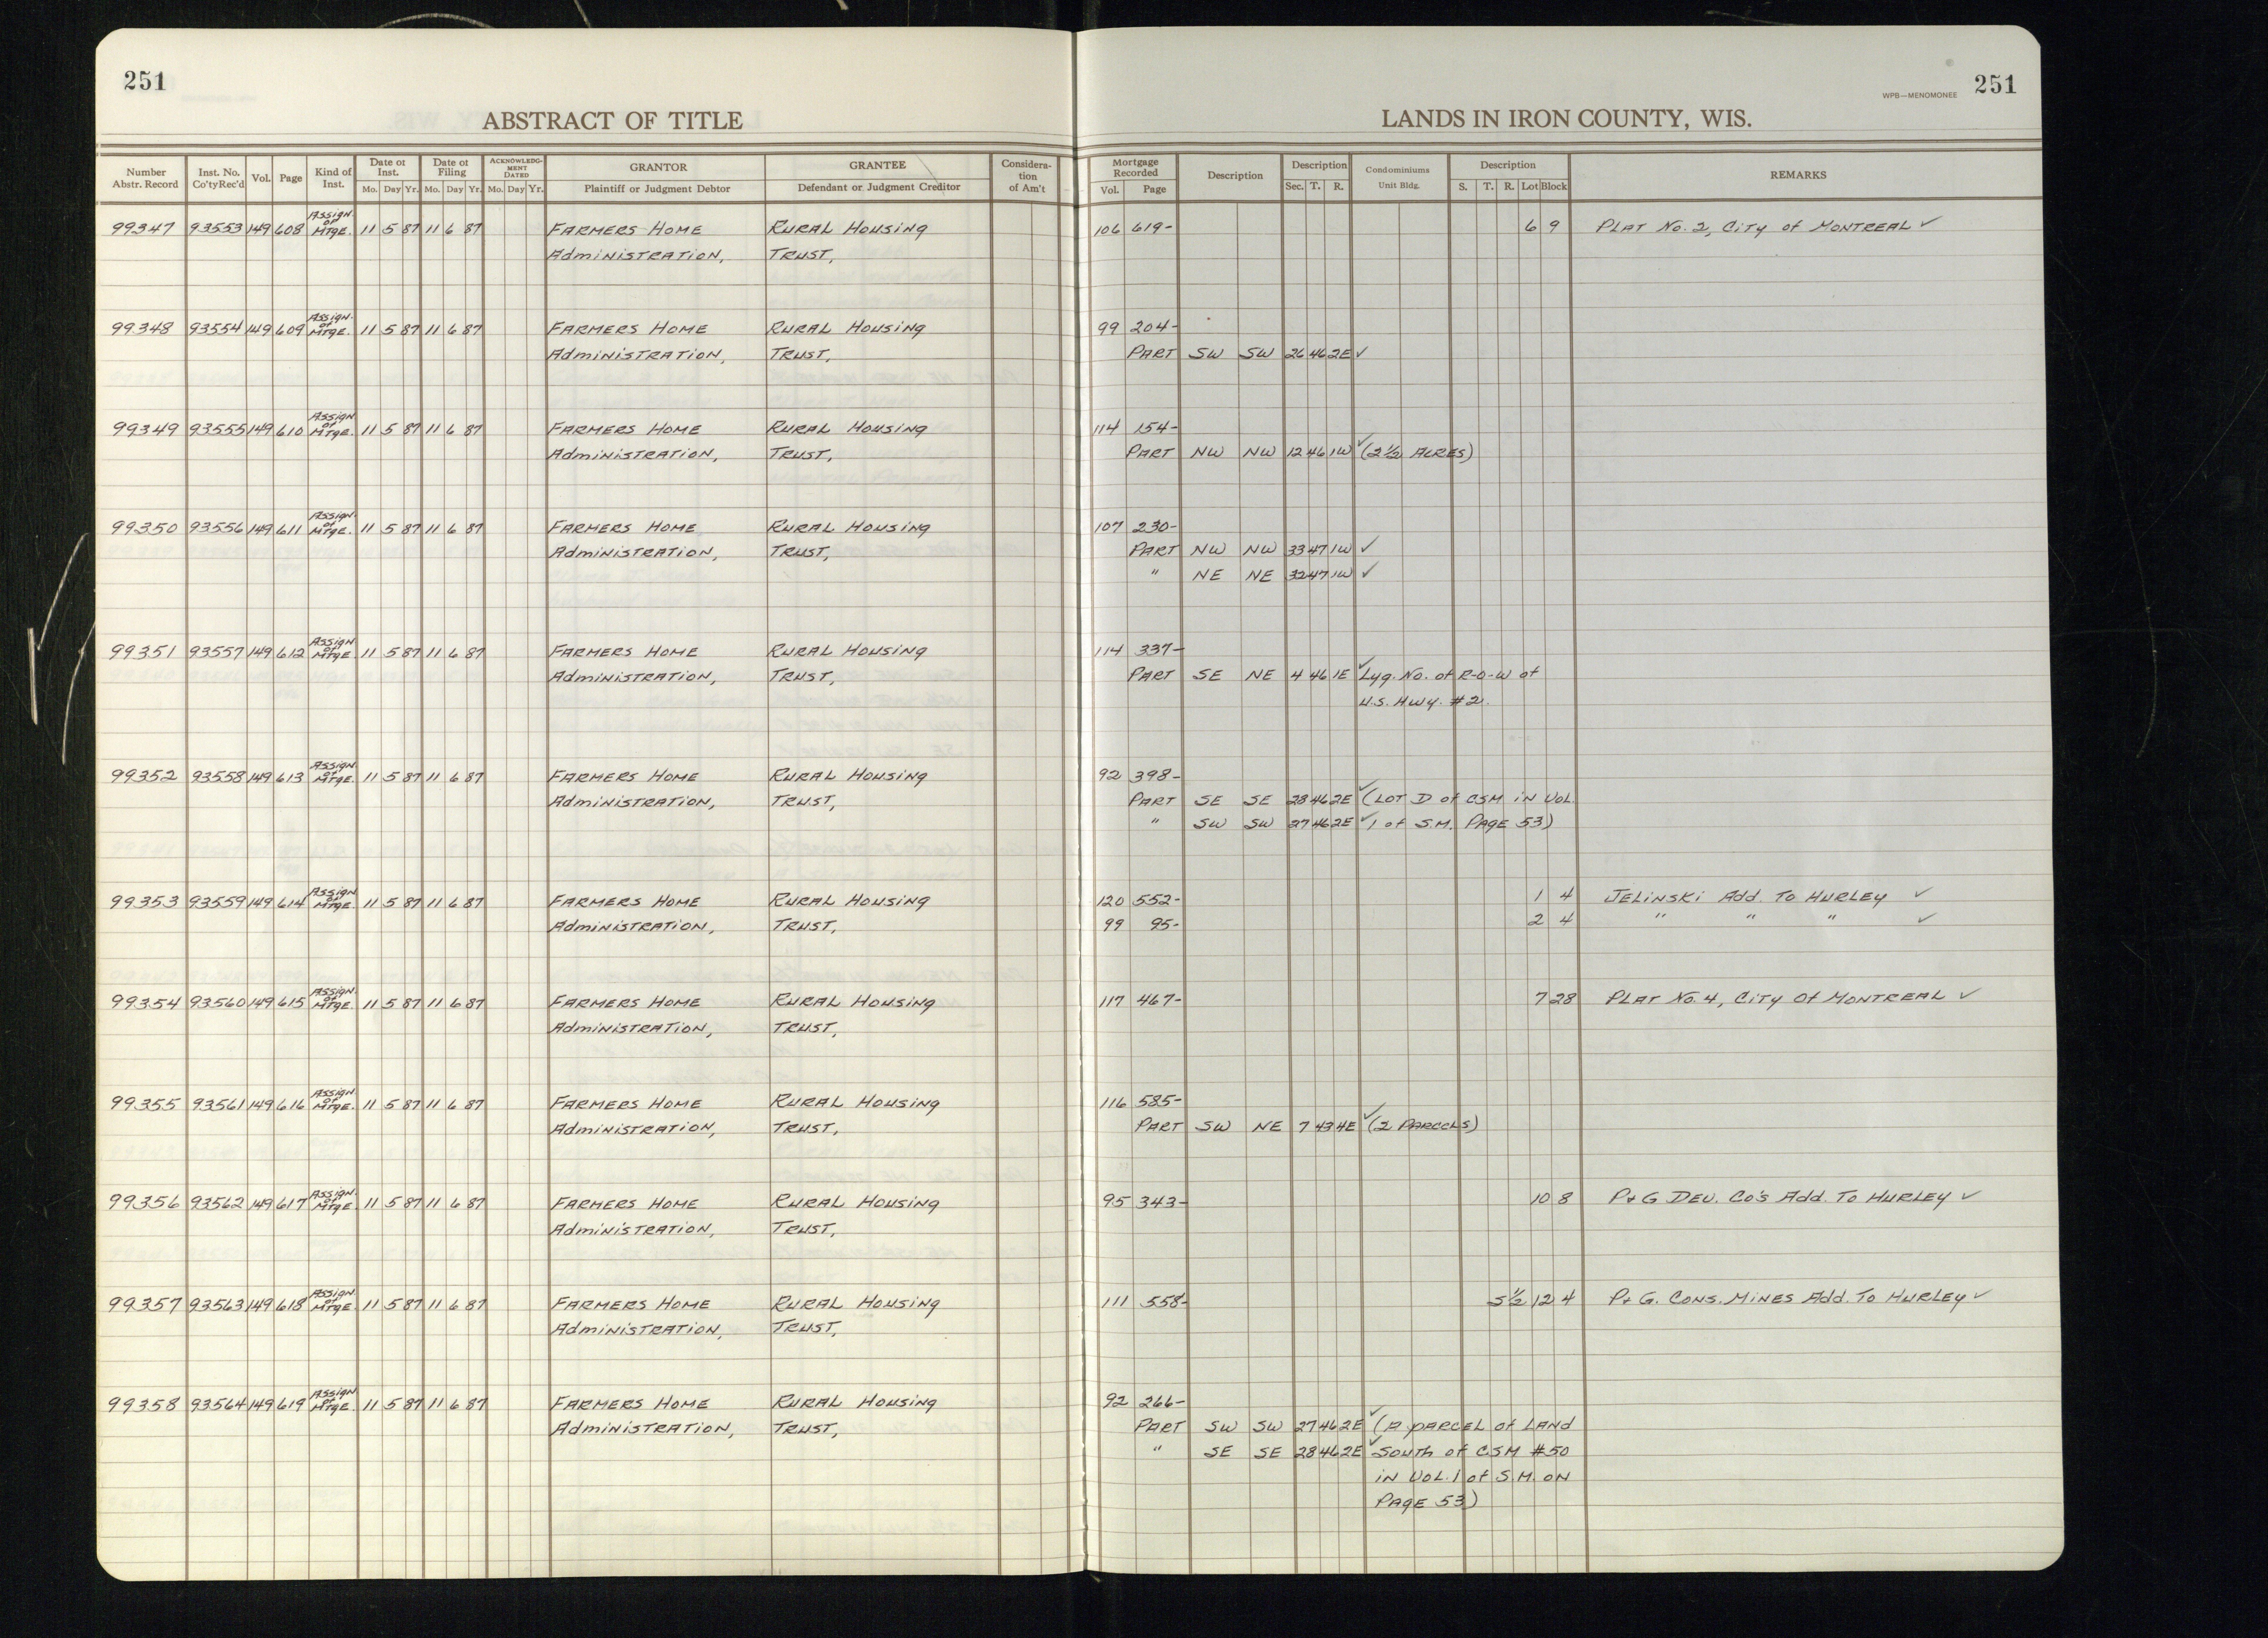 251
ABSTRACT OF TITLE
Number Abstr. Record
Inst. No. Co'tyRec'd
Vol.
Page
Kind of Inst.
Date of Inst. Mo. Day Yr.
Date of Filing Mo. Day Yr.
ACKNOWLEDGMENT DATED Mo. Day Yr.
GRANTOR Plaintiff or Judgment Debtor
GRANTEE Defendant or Judgment Creditor
Consideration of Am't
WPB—MENOMONEE 251
LANDS IN IRON COUNTY, WIS.
Mortgage Recorded Vol. Page
Description
Description Sec. T. R.
Condominiums Unit Bldg.
Description S. T. R. Lot Block
REMARKS
99347 93553 149 608 Assign. of Mtge. 11 5 87 11 6 87 Farmers Home Rural Housing 106 619- 6 9 Plat No. 2, City of Montreal ✓
Administration, Trust,
99348 93554 149 609 Assign. of Mtge. 11 5 87 11 6 87 Farmers Home Rural Housing 99 204-
Administration, Trust, Part SW SW 26 46 2E ✓
99349 93555 149 610 Assign of Mtge. 11 5 87 11 6 87 Farmers Home Rural Housing 114 154-
Administration, Trust, Part NW NW 12 46 1W ✓ (2 1/2 Acres)
99350 93556 149 611 Assign. of Mtge. 11 5 87 11 6 87 Farmers Home Rural Housing 107 230-
Administration, Trust, Part NW NW 33 47 1W ✓
" NE NE 32 47 1W ✓
99351 93557 149 612 Assign of Mtge. 11 5 87 11 6 87 Farmers Home Rural Housing 114 337-
Administration, Trust, Part SE NE 4 46 1E ✓ Lyg. No. of R-O-W of
U.S. Hwy. #2.
99352 93558 149 613 Assign of Mtge. 11 5 87 11 6 87 Farmers Home Rural Housing 92 398-
Administration, Trust, Part SE SE 28 46 2E ✓ (Lot D of CSM in Vol.
" SW SW 27 46 2E ✓ 1 of S.M. Page 53)
99353 93559 149 614 Assign of Mtge. 11 5 87 11 6 87 Farmers Home Rural Housing 120 552- 1 4 Jelinski Add. To Hurley ✓
Administration, Trust, 99 95- 2 4 " " " ✓
99354 93560 149 615 Assign. of Mtge. 11 5 87 11 6 87 Farmers Home Rural Housing 117 467- 7 28 Plat No. 4, City Of Montreal ✓
Administration, Trust,
99355 93561 149 616 Assign of Mtge. 11 5 87 11 6 87 Farmers Home Rural Housing 116 585-
Administration, Trust, Part SW NE 7 43 4E ✓ (2 Parcels)
99356 93562 149 617 Assign. of Mtge 11 5 87 11 6 87 Farmers Home Rural Housing 95 343- 10 8 P+G Dev. Co's Add. To Hurley ✓
Administration, Trust,
99357 93563 149 618 Assign. of Mtge. 11 5 87 11 6 87 Farmers Home Rural Housing 111 558- S 1/2 12 4 P+G. Cons. Mines Add. To Hurley ✓
Administration, Trust,
99358 93564 149 619 Assign of Mtge. 11 5 87 11 6 87 Farmers Home Rural Housing 92 266-
Administration, Trust, Part SW SW 27 46 2E ✓ (A parcel of Land
" SE SE 28 46 2E ✓ South of CSM #50
in Vol. 1 of S.M. on
Page 53)